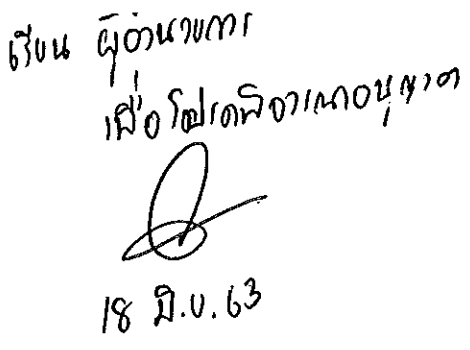 เรียน ผู้อำนวยการ
เพื่อโปรดพิจารณาอนุญาต
18 มิ.ย. 63